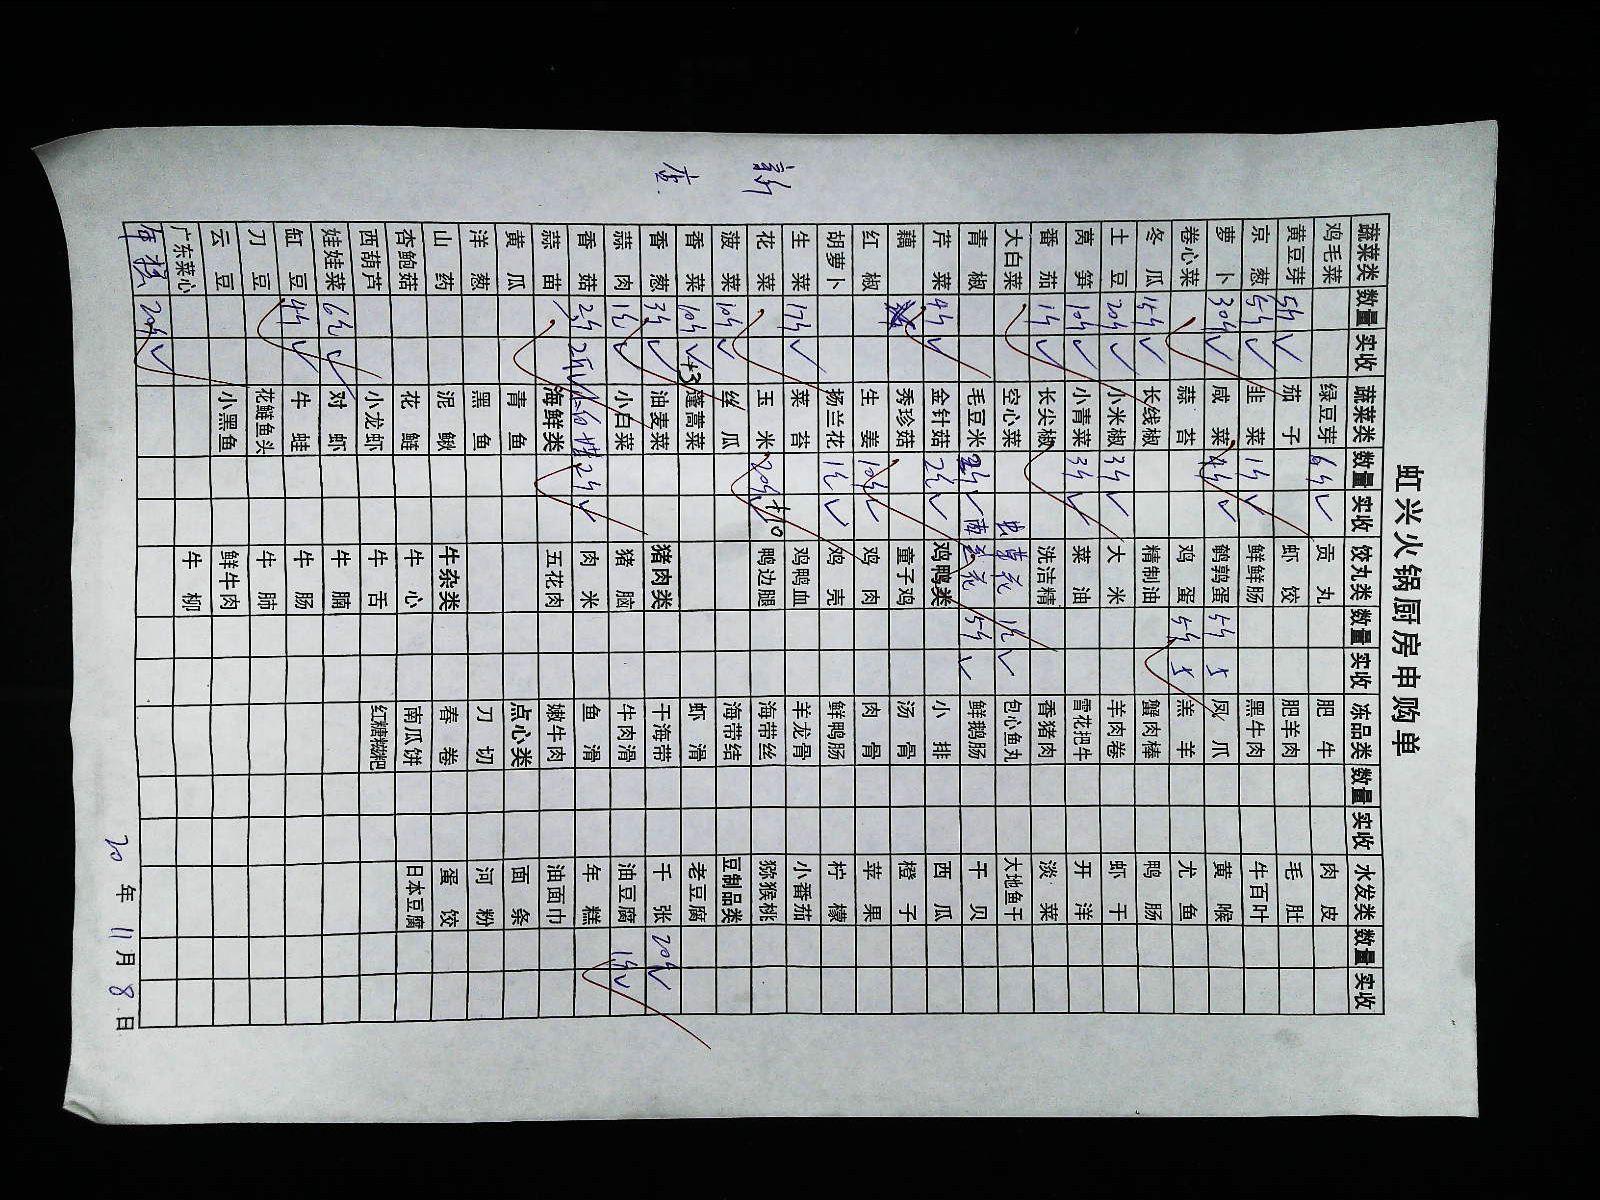 虹兴火锅厨房申购单
蔬菜类 数量 实收 蔬菜类 数量 实收 饺丸类 数量 实收 冻品类 数量 实收 水发类 数量 实收
鸡毛菜 绿豆芽 6斤 ✓ 贡丸 肥牛 肉皮
黄豆芽 5斤 ✓ 茄子 虾饺 肥羊肉 毛肚
京葱 5斤 ✓ 韭菜 1斤 ✓ 鲜鲜肠 黑牛肉 牛百叶
萝卜 30斤 ✓ 咸菜 4斤 ✓ 鹌鹑蛋 5斤 5 凤爪 黄喉
卷心菜 蒜苔 鸡蛋 5斤 5 羔羊 尤鱼
冬瓜 15斤 ✓ 长线椒 精制油 蟹肉棒 鸭肠
土豆 20斤 ✓ 小米椒 3斤 ✓ 大米 羊肉卷 虾干
莴笋 10斤 ✓ 小青菜 3斤 ✓ 菜油 雪花把牛 开洋
番茄 1斤 ✓ 长尖椒 洗洁精 香猪肉 淡菜
大白菜 空心菜 虫草花 1斤 ✓ 包心鱼丸 大地鱼干
青椒 毛豆米 2斤 ✓ 5斤 ✓ 鲜鹅肠 干贝
芹菜 4斤 ✓ 金针菇 2斤 ✓ 鸡鸭类 小排 西瓜
藕 秀珍菇 童子鸡 汤骨 橙子
红椒 生姜 10斤 ✓ 鸡肉 肉骨 苹果
胡萝卜 扬兰花 1斤 ✓ 鸡壳 鲜鸭肠 柠檬
生菜 17斤 ✓ 菜苔 鸡鸭血 羊龙骨 小番茄
花菜 玉米 20斤 +10 鸭边腿 海带丝 猕猴桃
菠菜 10斤 ✓ 丝瓜 海带结 豆制品类
香菜 10斤 ✓ +3 蓬蒿菜 虾滑 老豆腐
香葱 3斤 ✓ 油麦菜 猪肉类 干海带 千张 20斤 ✓
蒜肉 1斤 ✓ 小白菜 猪脑 牛肉滑 油豆腐 1斤 ✓
香菇 2斤 2斤 ✓ 2斤 ✓ 肉米 鱼滑 年糕
蒜苗 海鲜类 五花肉 嫩牛肉 油面巾
黄瓜 青鱼 点心类 面条
洋葱 黑鱼 刀切 河粉
山药 泥鳅 牛杂类 春卷 蛋饺
杏鲍菇 花鲢 牛心 南瓜饼 日本豆腐
西葫芦 小龙虾 牛舌 红糖糍粑
娃娃菜 6斤 ✓ 对虾 牛腩
缸豆 4斤 ✓ 牛蛙 牛肠
刀豆 花鲢鱼头 牛肺
云豆 小黑鱼 鲜牛肉
广东菜心 牛柳
年糕 20斤 ✓
20 年 11 月 8 日
新店